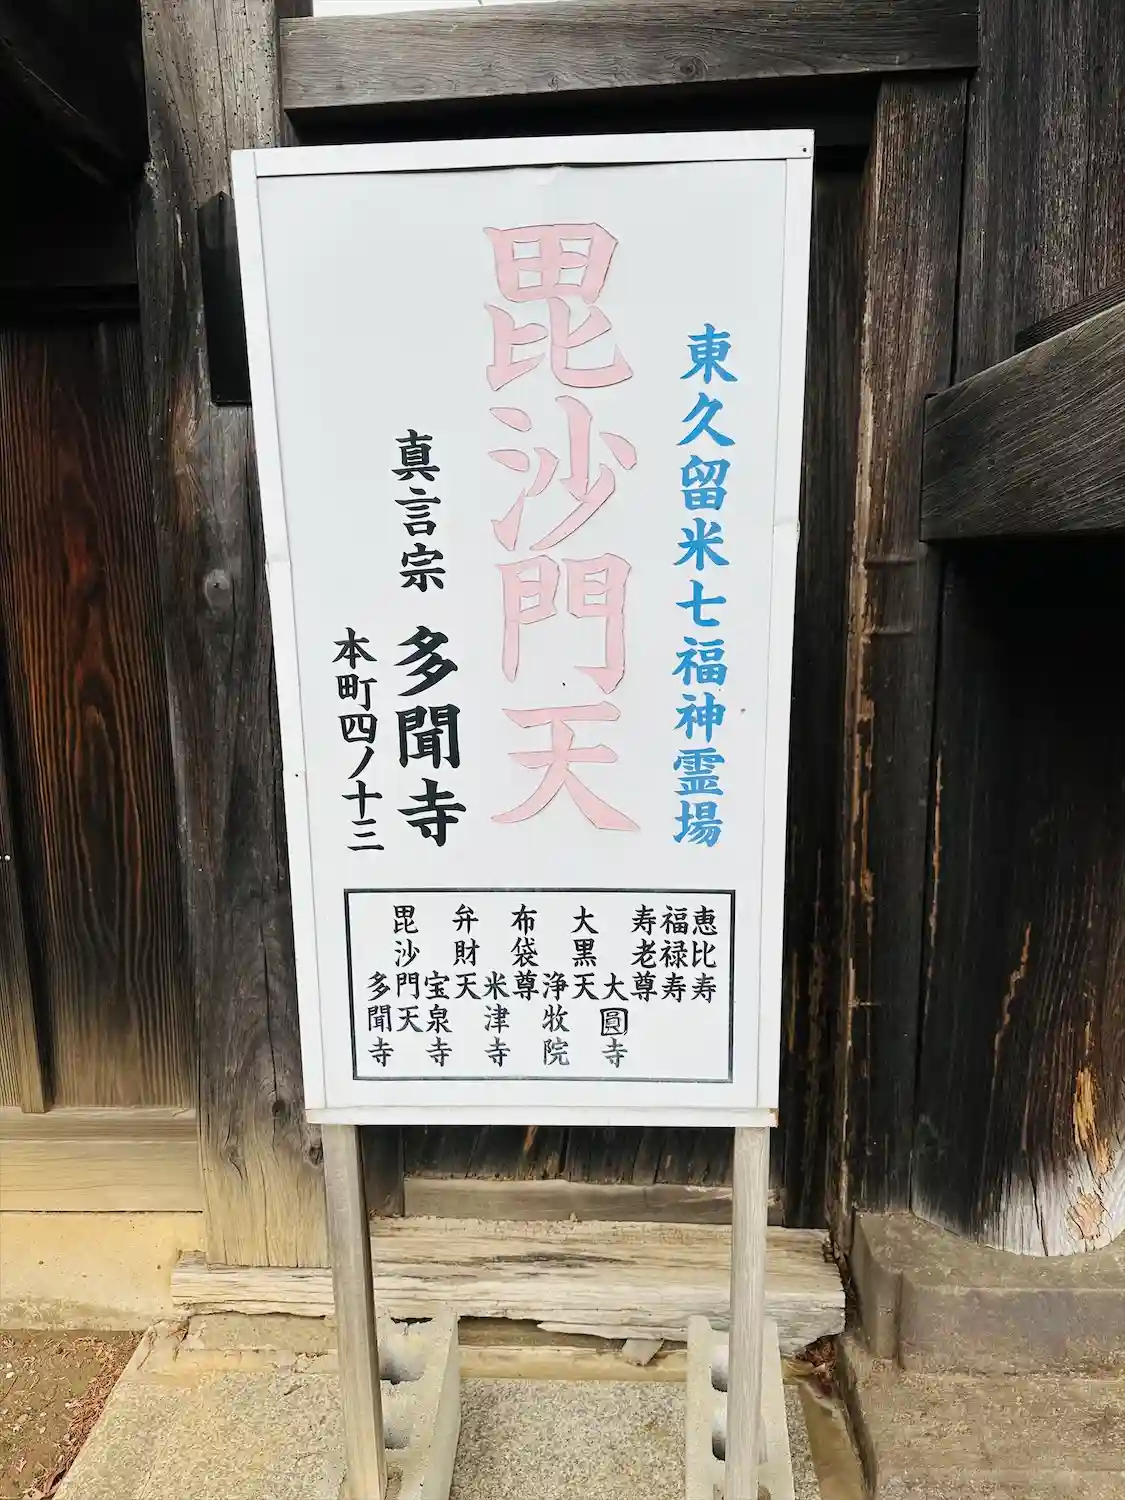 東久留米七福神霊場
毘沙門天
真言宗 多聞寺
本町四ノ十三
恵比寿
福禄寿
寿老尊
大圓寺
大黒天
浄牧院
布袋尊
米津寺
弁財天
宝泉寺
毘沙門天
多聞寺